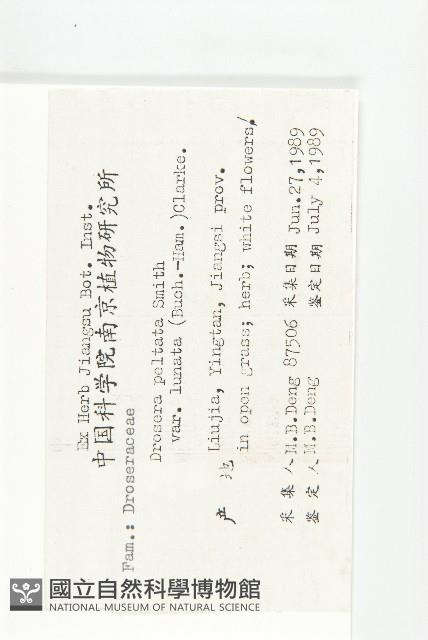 Ex Herb Jiangsu Bot. Inst.
中国科学院南京植物研究所
Fam.: Droseraceae
Drosera peltata Smith
var. lunata (Buch.-Ham.)Clarke.
产地 Liujia, Yingtan, Jiangsi prov.
in open grass; herb; white flowers,
采集人 M.B.Deng 87506 采集日期 Jun.27,1989
鉴定人 M.B.Deng 鉴定日期 July 4,1989
國立自然科學博物館
NATIONAL MUSEUM OF NATURAL SCIENCE